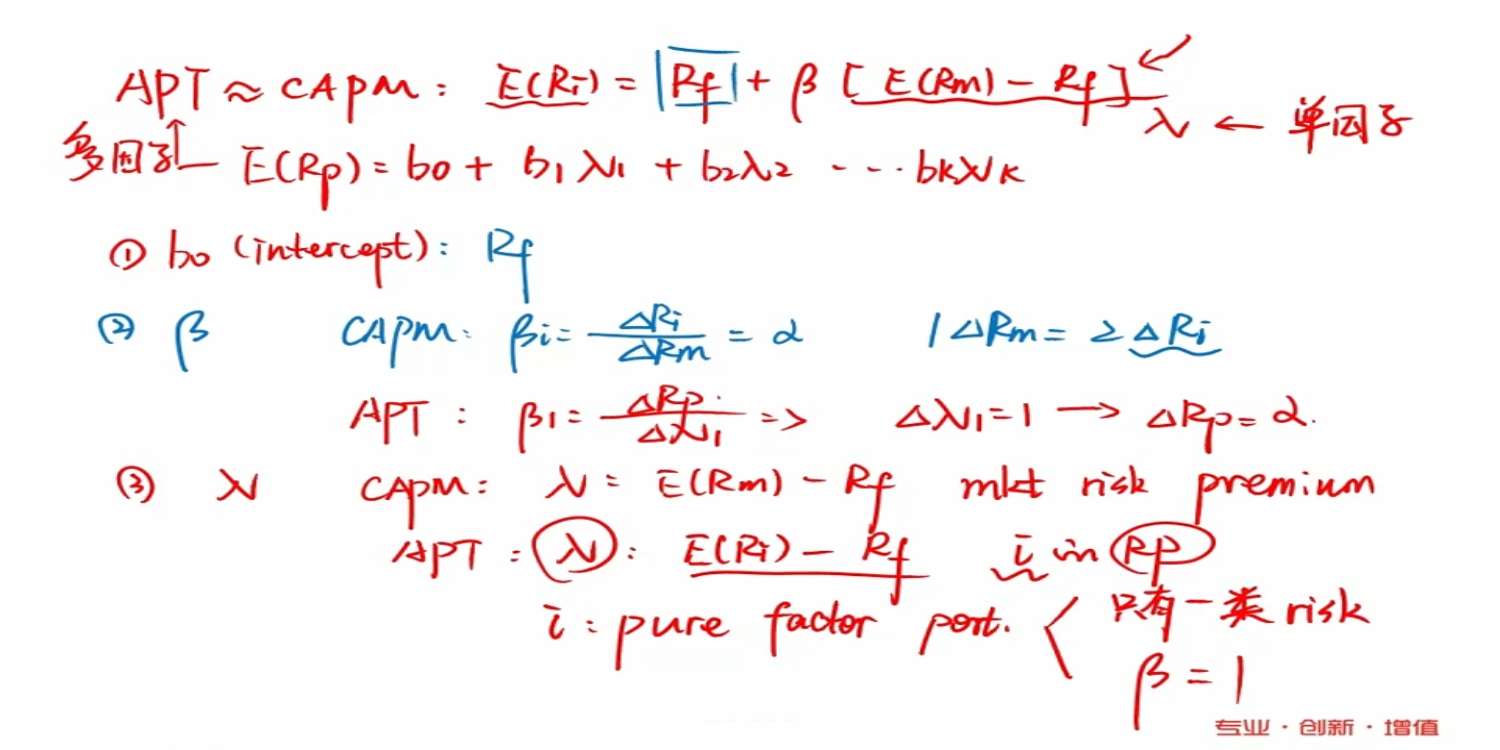 APT ≈ CAPM: E(Ri) = |Rf| + β [E(Rm) - Rf]
λ ← 单因子
多因子 E(Rp) = b0 + b1λ1 + b2λ2 ---- bkλk
① b0 (intercept): Rf
② β CAPM: βi = ΔRi/ΔRm = 2 1ΔRm = 2ΔRi
APT: β1 = ΔRp/Δλ1 => Δλ1=1 → ΔRp=2.
③ λ CAPM: λ = E(Rm) - Rf mkt risk premium
APT: λ: E(Ri) - Rf i in Rp
i: pure factor port. < 只有一类risk
β = 1
专业·创新·增值